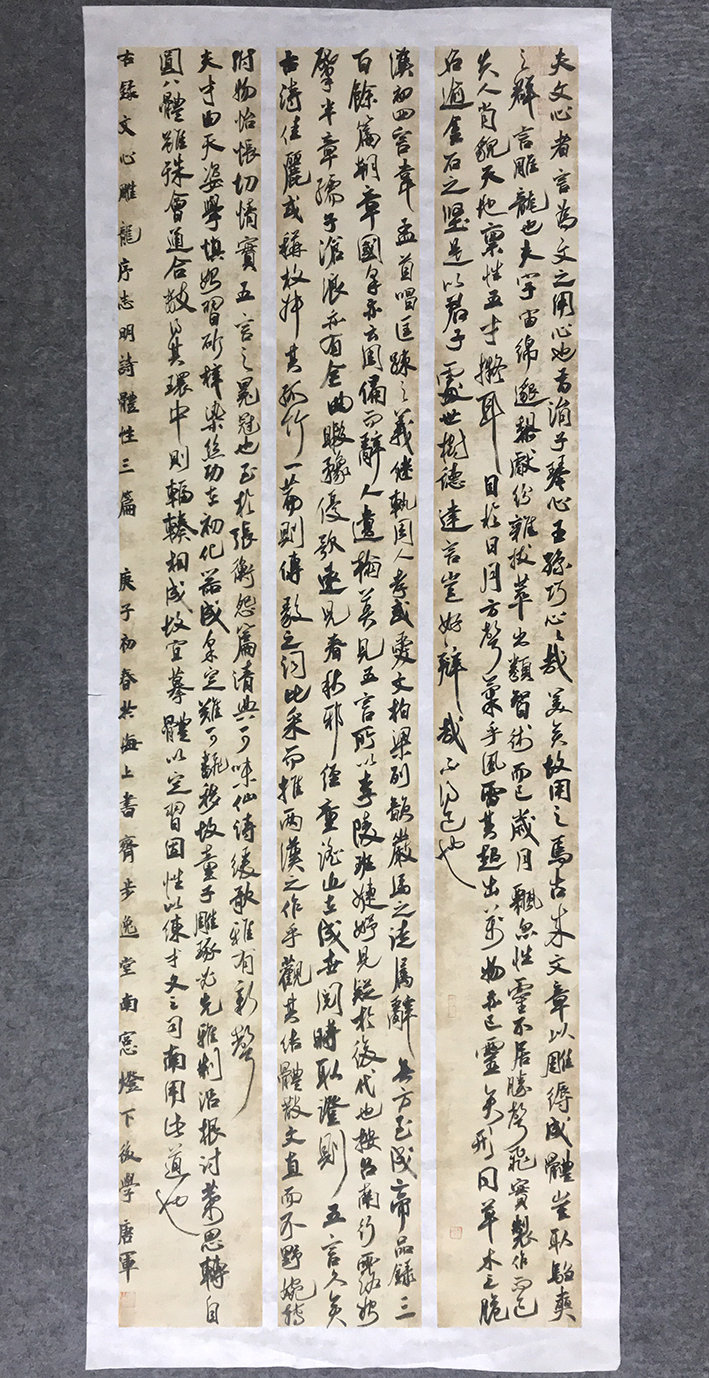 夫文心者言為文之用心也昔涓子琴心王孫巧心心哉美矣故用之焉古來文章以雕縟成體豈取騶奭
之群言雕龍也夫宇宙綿邈黎獻紛雜拔萃出類智術而已歲月飄忽性靈不居騰聲飛實製作而已
夫人肖貌天地稟性五才擬耳目於日月方聲氣乎風雷其超出萬物亦已靈矣形同草木之脆
名逾金石之堅是以君子處世樹德建言豈好辯哉不得已也
漢初四言韋孟首唱匡諫之義繼軌周人孝武愛文柏梁列韻嚴馬之徒屬辭無方至成帝品錄三
百餘篇朝章國采亦云周備而辭人遺翰莫見五言所以李陵班婕妤見疑於後代也按召南行露始
肇半章孺子滄浪亦有全曲暇豫優歌遠見春秋邪徑童謠近在成世閱時取證則五言久矣
古詩佳麗或稱枚叔其孤竹一篇則傅毅之詞比采而推兩漢之作乎觀其結體散文直而不野婉轉
附物怊悵切情實五言之冕冠也至於張衡怨篇清典可味仙詩緩歌雅有新聲
夫才由天資學慎始習斫梓染絲功在初化器成采定難可翻移故童子雕琢必先雅制沿根討葉思轉自
圓八體雖殊會通合數得其環中則輻輳相成故宜摹體以定習因性以練才文之司南用此道也
右錄文心雕龍序志明詩體性三篇 庚子初春於海上書齋步逸堂南窗燈下後學唐軍